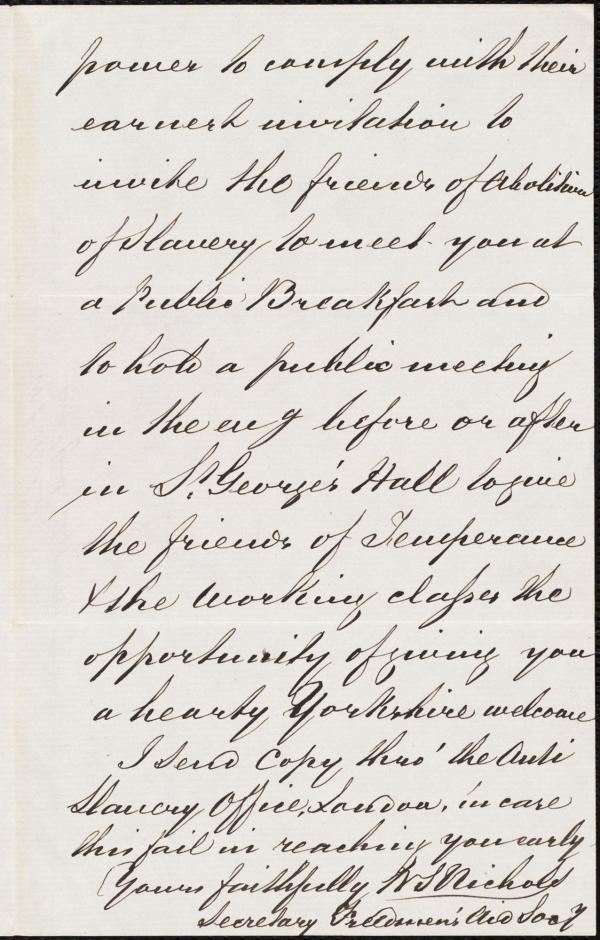 power to comply with their
earnest invitation to
invite the friends of Abolition
of Slavery to meet you at
a Public Breakfast and
to hold a public meeting
in the eug before or after
in St. George's Hall to give
the friends of Temperance
& the working classes the
opportunity of giving you
a hearty Yorkshire welcome
I send Copy thro' the Anti
Slavery Office, London, in case
this fail in reaching you early
Yours faithfully Nichols
Secretary Freedmen's Aid Socy